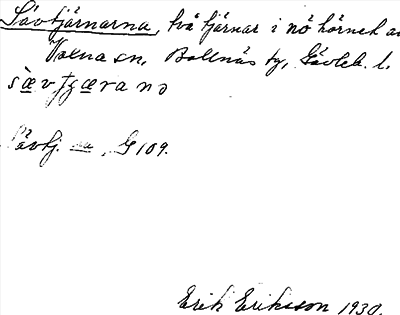 Sävtjärnarna, två tjärnar i nö hörnet av
Voxna sn, Bollnäs tg, Gävleb. l.
Sävtj. na, G 109.
Erik Eriksson 1930.